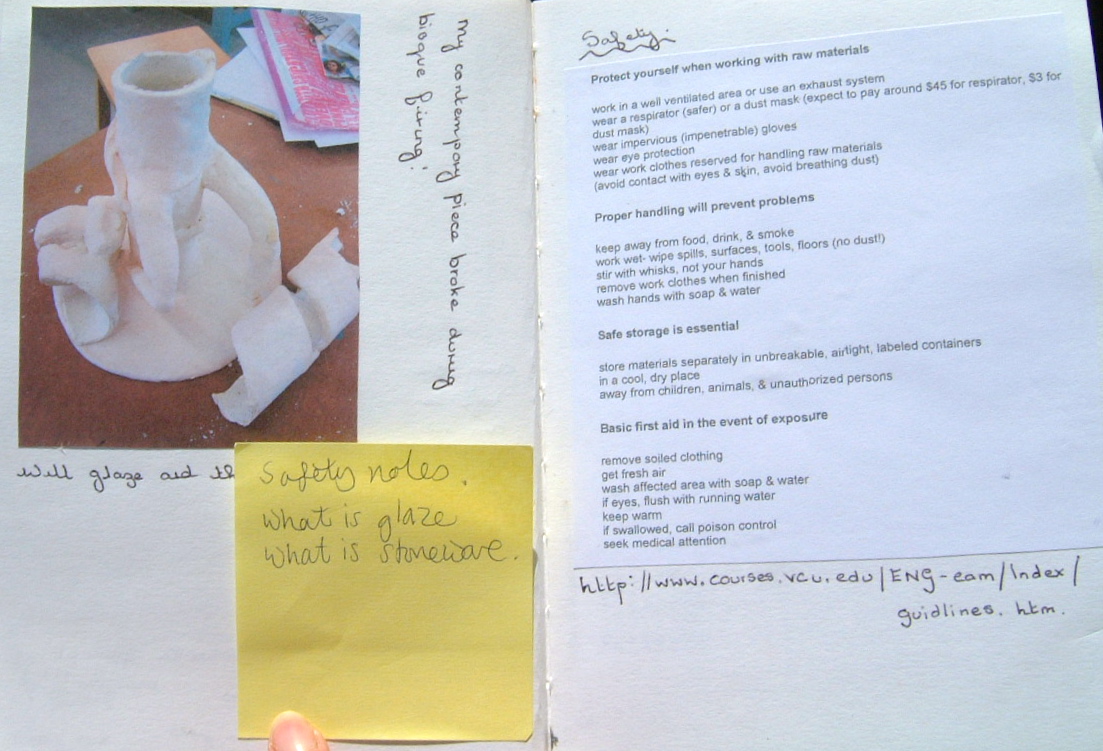 my contempory piece broke during
bisque firing!
will glaze aid th
Safety notes.
What is glaze
What is stoneware.
Safety.
Protect yourself when working with raw materials
work in a well ventilated area or use an exhaust system
wear a respirator (safer) or a dust mask (expect to pay around $45 for respirator, $3 for
dust mask)
wear impervious (impenetrable) gloves
wear eye protection
wear work clothes reserved for handling raw materials
(avoid contact with eyes & skin, avoid breathing dust)
Proper handling will prevent problems
keep away from food, drink, & smoke
work wet- wipe spills, surfaces, tools, floors (no dust!)
stir with whisks, not your hands
remove work clothes when finished
wash hands with soap & water
Safe storage is essential
store materials separately in unbreakable, airtight, labeled containers
in a cool, dry place
away from children, animals, & unauthorized persons
Basic first aid in the event of exposure
remove soiled clothing
get fresh air
wash affected area with soap & water
if eyes, flush with running water
keep warm
if swallowed, call poison control
seek medical attention
http://www.courses.vcu.edu/ENG-eam/Index/
guidlines.htm.